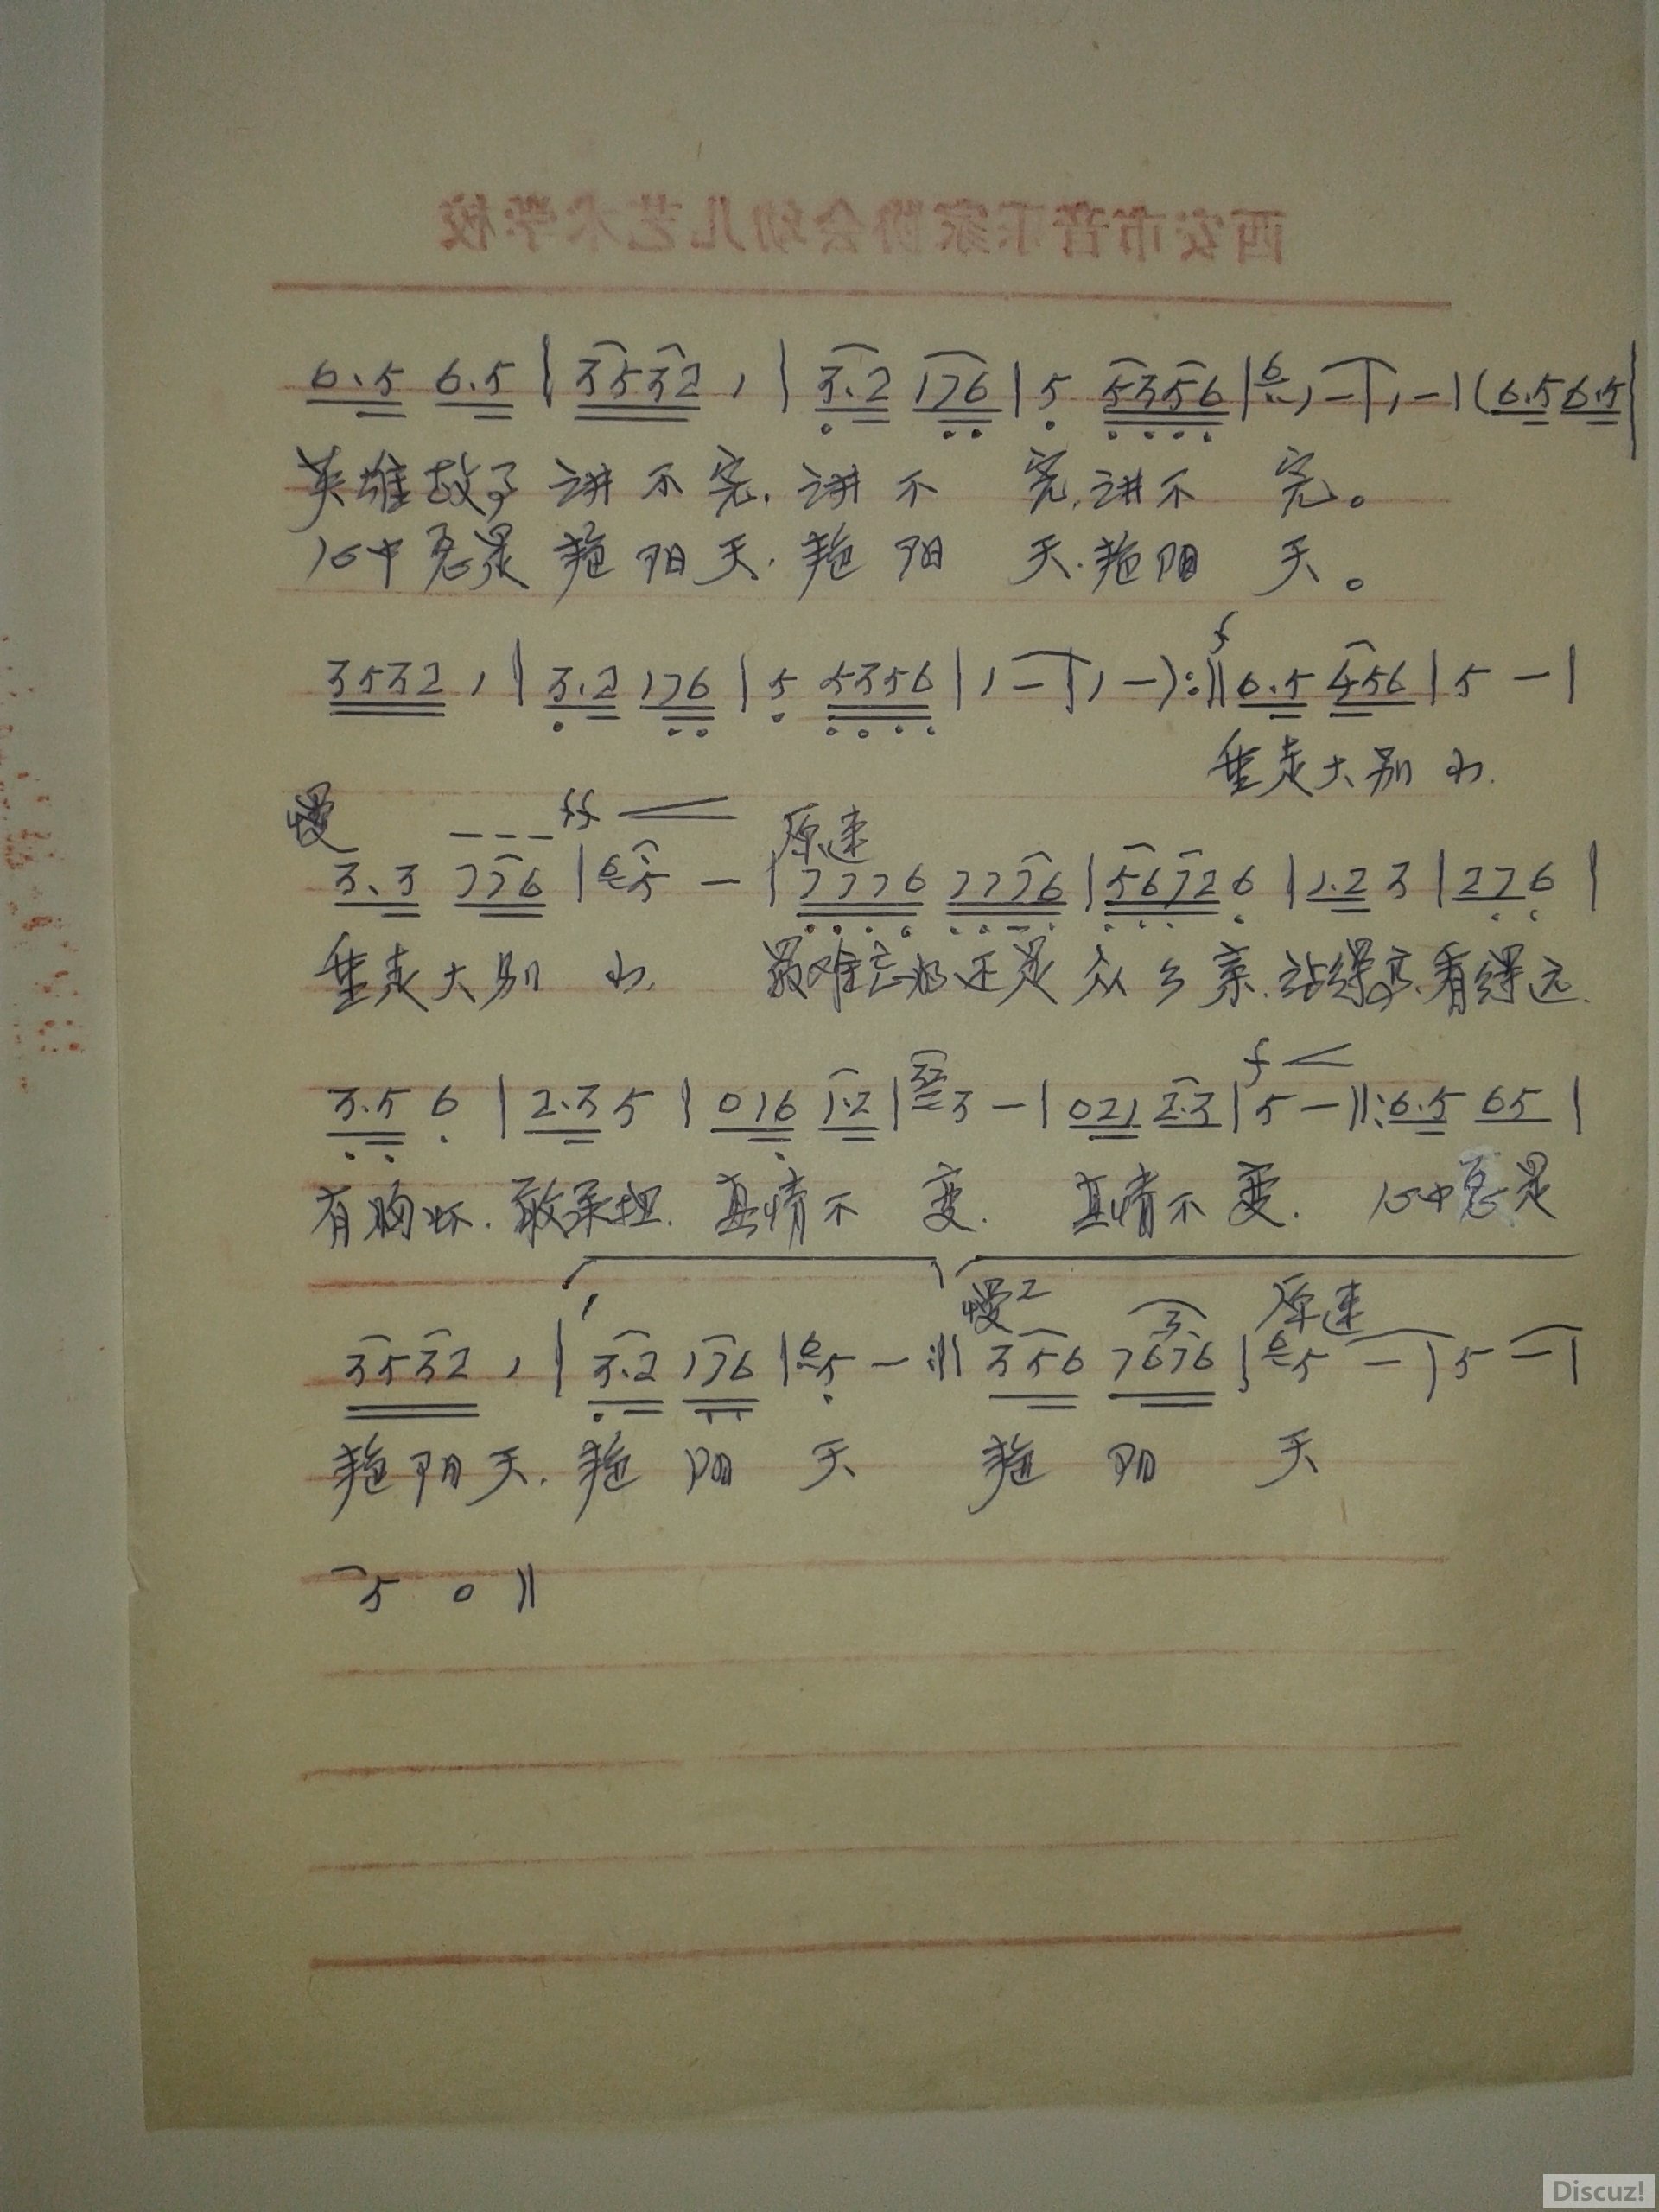 西安市音乐家协会幼儿艺术学校
6.5 6.5 | 3532 1 | 3.2 176 | 5 5356 | 6 1 - | 1 - | (6.5 6.5 |
英雄故事讲不完,讲不完,讲不完。
心中总是艳阳天.艳阳天.艳阳天。
f
3532 1 | 3.2 176 | 5 5356 | 1 - | 1 -):|| 6.5 456 | 5 - |
重走大别山.
慢 ff 原速
3.3 776 | 6 5 - | 7776 7776 | 5672 6 | 1.2 3 | 276 |
重走大别山. 最难忘的还是众乡亲.站得高.看得远.
f
3.5 6 | 2.3 5 | 016 1.2 | 3 - | 021 2.3 | 5 - ||: 6.5 65 |
有胸怀.敢承担.真情不变. 真情不变. 心中总是
1 慢 2 3 原速
3532 1 | 3.2 176 | 6 5 - :|| 356 7676 | 6 5 - | 5 - |
艳阳天.艳阳天 艳阳天
5 0 ||
Discuz!